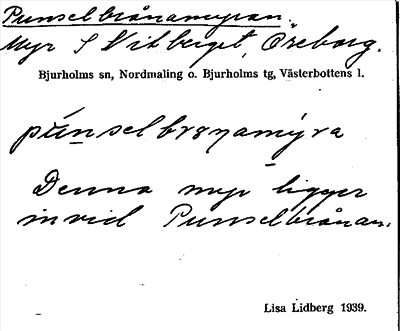 Punselbrånamyran.
Myr S Vitberget, Öreborg.
Bjurholms sn, Nordmaling o. Bjurholms tg, Västerbottens l.
Denna myr ligger
invid Punselbrånan.
Lisa Lidberg 1939.